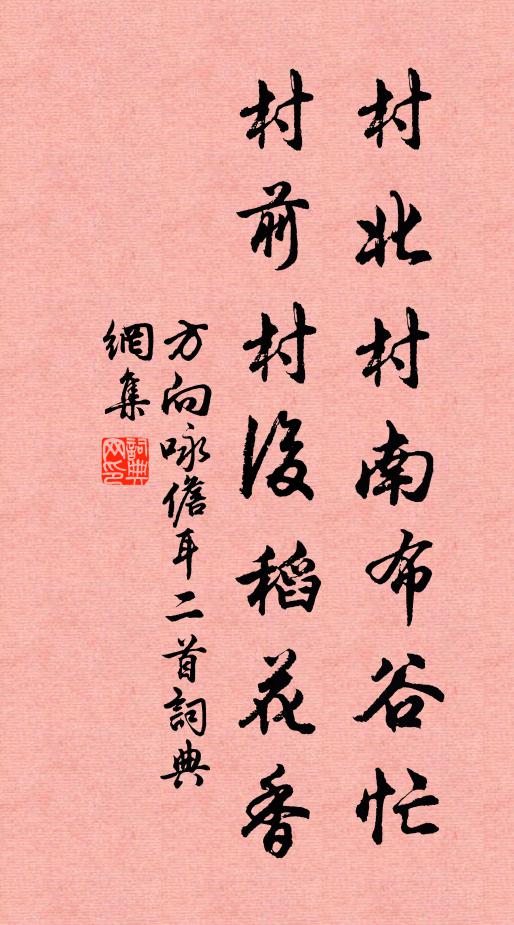 村北村南布谷忙
村前村後稻花香
方向咏儋耳二首詞典
網集
詞典網印